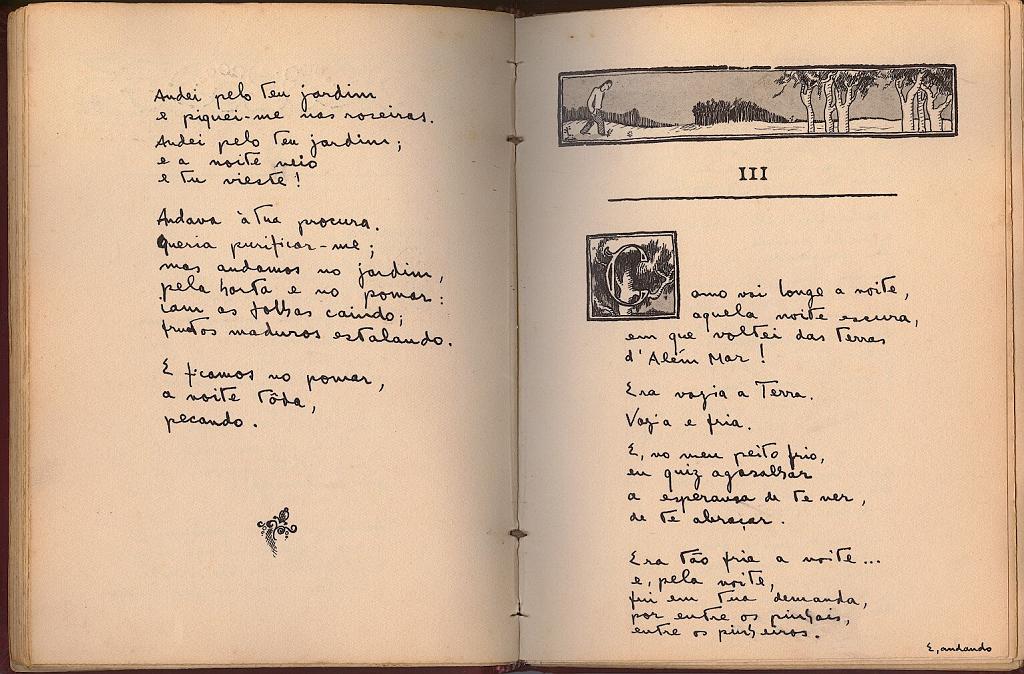 Andei pelo teu jardim
e piquei-me nas roseiras.
Andei pelo teu jardim;
e a noite veio
e tu vieste!
Andava à tua procura.
Queria purificar-me;
mas andamos no jardim,
pela horta e no pomar:
iam as folhas caindo;
frutos maduros estalando.
E ficamos no pomar,
a noite tôda,
pecando.
III
Como vai longe a noite,
aquela noite escura,
em que voltei das terras
d'Além Mar!
Era vazia a Terra.
Vazia e fria.
E, no meu peito frio,
eu quiz agasalhar
a esperansa de te ver,
de te abraçar.
Era tão fria a noite...
e, pela noite,
fui em tua demanda,
por entre os pinhais,
entre os pinheiros.
E, andando